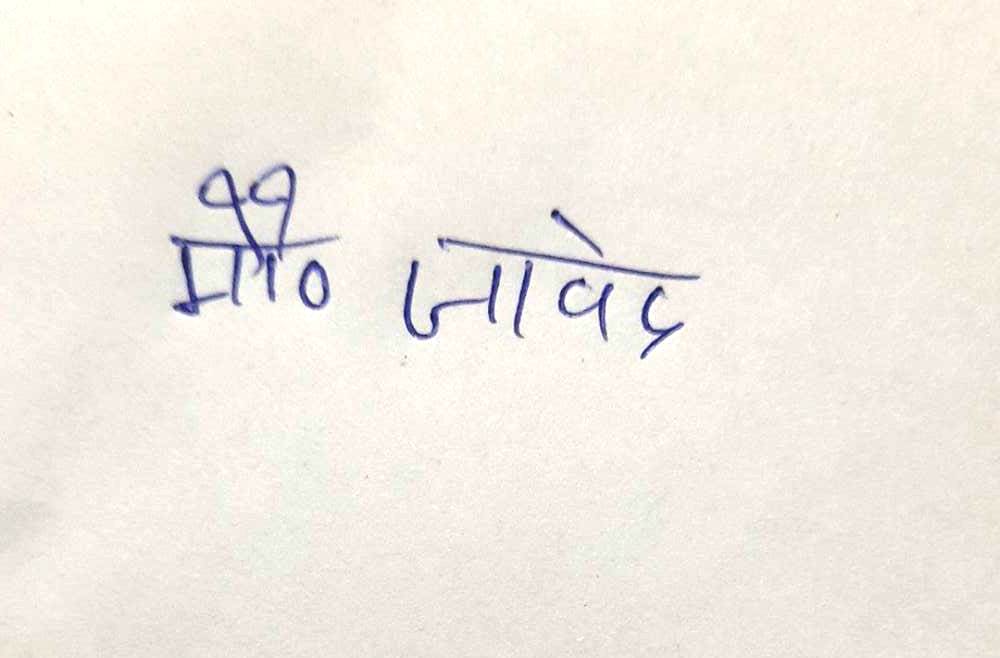 मौ० जावेद